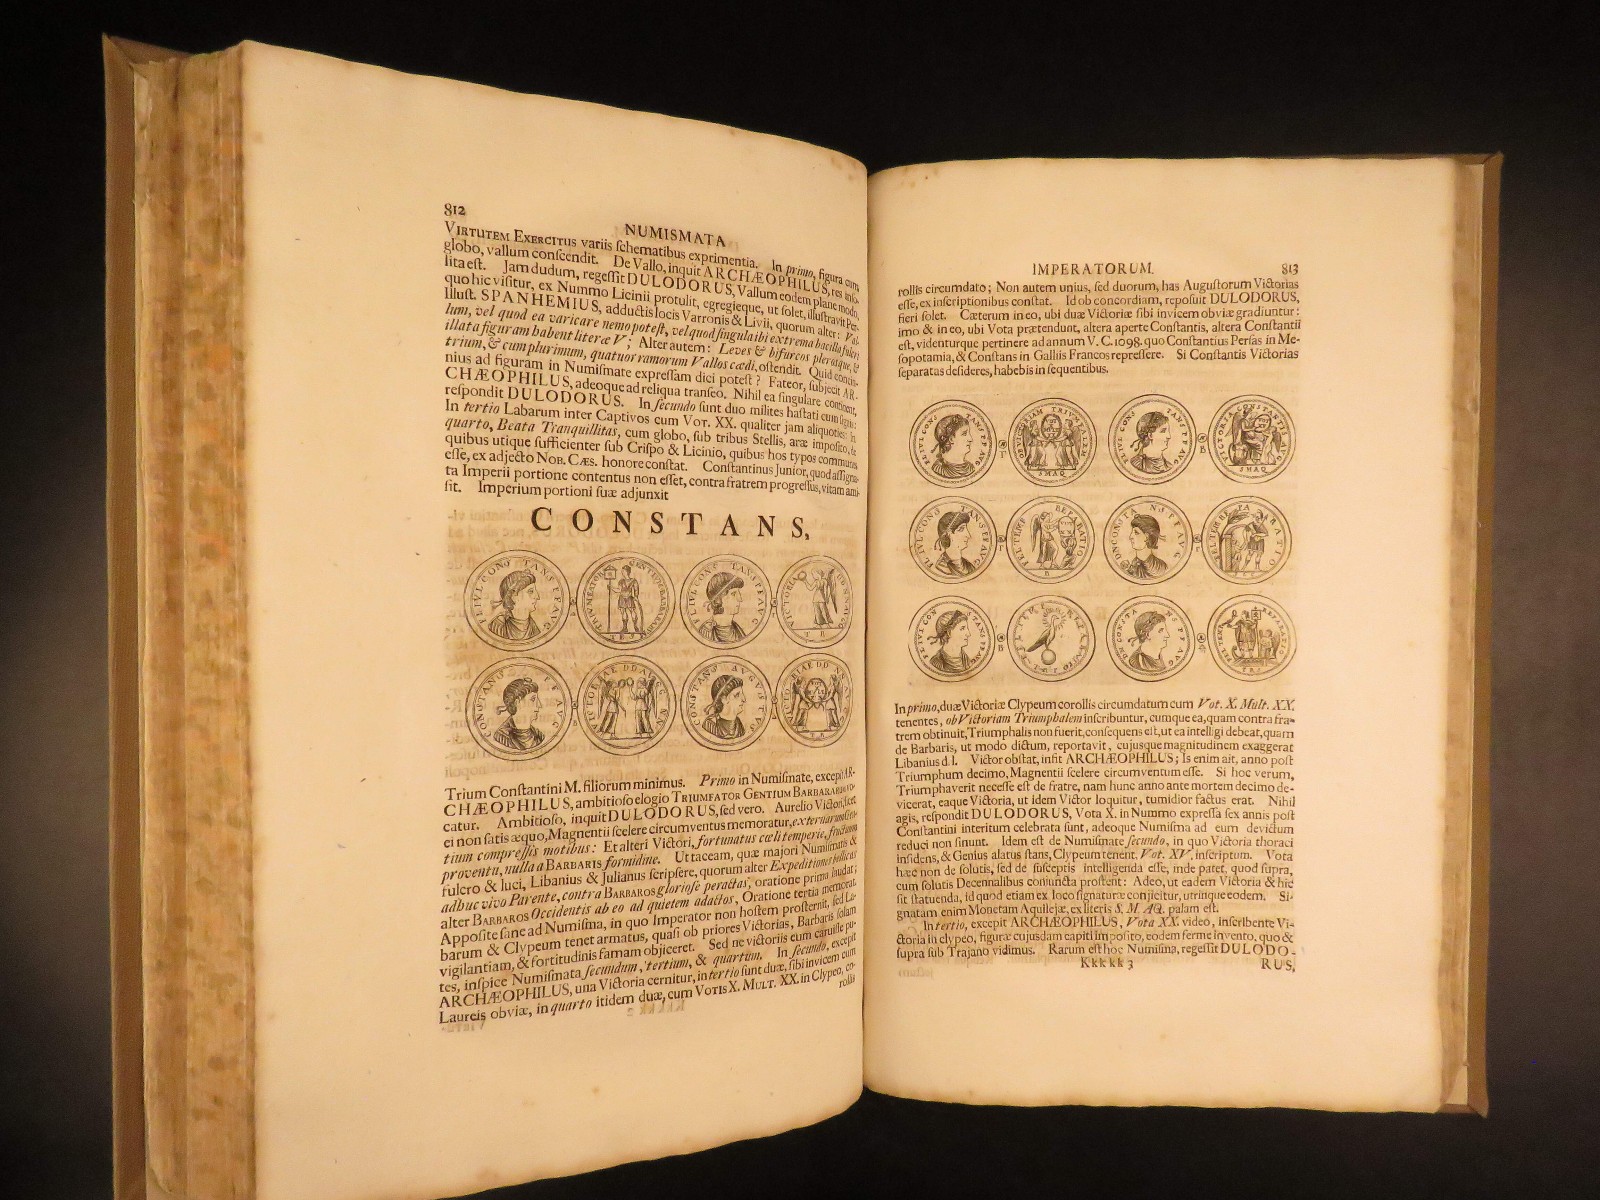 812
NUMISMATA
VIRTUTEM EXERCITUS variis ſchematibus exprimentia. In primo, figura cum
globo, vallum conſcendit. De Vallo, inquit ARCHÆOPHILUS, res
lita eſt. Jamdudum, regeſſit DULODORUS, Vallum eodem plane modo,
quo hic viſitur, ex Nummo Licinii protulit, egregieque, ut ſolet, illuſtravit Per-
Illuſt. SPANHEMIUS, adductis locis Varronis & Livii, quorum alter: Val-
lum, vel quod ea varicare nemo poteſt, vel quod ſingula ibi extrema bacilla
illata figuram habent literæ V; Alter autem: Leves & bifurcos plerosque, &
trium, & cum plurimum, quatuor ramorum Vallos cædi, oſtendit. Quid
nius ad figuram in Numiſmate expreſſam dici poteſt? Fateor, ſubjecit AR-
CHÆOPHILUS, adeoque ad reliqua tranſeo. Nihil ea ſingulare continent,
reſpondit DULODORUS. In ſecundo ſunt duo milites haſtati cum ſignis:
In tertio Labarum inter Captivos cum VOT. XX. qualiter jam aliquoties: In
quarto, Beata Tranquillitas, cum globo, ſub tribus Stellis, aræ impoſito, &
quibus utique ſufficienter ſub Criſpo & Licinio, quibus hos typos communes
eſſe, ex adjecto NOB. CÆS. honore conſtat. Conſtantinus Junior, quod aſſigna-
ta Imperii portione contentus non eſſet, contra fratrem progreſſus, vitam ami-
ſit. Imperium portioni ſuæ adjunxit
CONSTANS,
FL IVL CONS TANS P F AVG
TRIVMFATOR GENTIVM BARBARARVM
TES
FL IVL CONS TANS P F AVG
VICTORIA
TR
CONSTANS P F AVG
VICTORIAE DD NN AVGG
CONSTANS AVGVSTVS
VICTORIAE DD NN AVGG
TR
Trium Conſtantini M. filiorum minimus. Primo in Numiſmate, excepit AR-
CHÆOPHILUS, ambitioſo elogio TRIUMFATOR GENTIUM BARBARARUM di-
catur. Ambitioſo, inquit DULODORUS, ſed vero. Aurelio Victori, licet
ei non ſatis æquo, Magnentii ſcelere circumventus memoratur, externarum gen-
tium compreſſis motibus: Et alteri Victori, fortunatus cæli temperie, fructuum
proventu, nulla a BARBARIS formidine. Ut taceam, quæ majori Numiſmatis &
fulcro & luci, Libanius & Julianus ſcripſere, quorum alter Expeditiones bellicas
adhuc vivo Parente, contra BARBAROS glorioſe peractas, oratione prima laudat;
alter BARBAROS Occidentis ab eo ad quietem adactos, Oratione tertia memorat.
Appoſite ſane ad Numiſma, in quo Imperator non hoſtem proſternit, ſed La-
barum & Clypeum tenet armatus, quaſi ob priores Victorias, Barbaris ſolam
vigilantiam, & fortitudinis famam objiceret. Sed ne victoriis eum caruiſſe pu-
tes, inſpice Numiſmata ſecundum, tertium, & quartum. In ſecundo, excepit
ARCHÆOPHILUS, una Victoria cernitur, in tertio ſunt duæ, ſibi invicem cum
Laureis obviæ, in quarto itidem duæ, cum VOTIS X. MULT. XX. in Clypeo, co-
rollis
IMPERATORUM.
813
rollis circumdato; Non autem unius, ſed duorum, has Auguſtorum Victorias
eſſe, ex inſcriptionibus conſtat. Id ob concordiam, repoſuit DULODORUS,
fieri ſolet. Cæterum in eo, ubi duæ Victoriæ ſibi invicem obviæ gradiuntur:
imo & in eo, ubi Vota prætendunt, altera aperte Conſtantis, altera Conſtantii
eſt, videnturque pertinere ad annum V. C. 1098. quo Conſtantius Perſas in Me-
ſopotamia, & Conſtans in Galliis Francos repreſſere. Si Conſtantis Victorias
ſeparatas deſideres, habebis in ſequentibus.
FL IVL CONS TANS P F AVG
OB VICTORIAM TRIVMFALEM
SMAQ
FL IVL CONS TANS P F AVG
VICTORIA CONSTANTIS AVG
SMAQ
FL IVL CONS TANS P F AVG
FEL TEMP REPARATIO
R
DN CONSTA NS P F AVG
FEL TEMP REPA RATIO
FL IVL CON TANS P F AVG
FEL TEMP REPARATIO
DN CONSTA NS P F AVG
FEL TEMP REPARATIO
In primo, duæ Victoriæ Clypeum corollis circumdatum cum Vot. X. Mult. XX.
tenentes, ob Victoriam Triumphalem inſcribuntur, cumque ea, quam contra fra-
trem obtinuit, Triumphalis non fuerit, conſequens eſt, ut ea intelligi debeat, quam
de Barbaris, ut modo dictum, reportavit, cujusque magnitudinem exaggerat
Libanius d. l. Victor obſtat, infit ARCHÆOPHILUS; Is enim ait, anno poſt
Triumphum decimo, Magnentii ſcelere circumventum eſſe. Si hoc verum,
Triumphaverit neceſſe eſt de fratre, nam hunc anno ante mortem decimo de-
vicerat, eaque Victoria, ut idem Victor loquitur, tumidior factus erat. Nihil
agis, reſpondit DULODORUS, Vota X. in Nummo expreſſa ſex annis poſt
Conſtantini interitum celebrata ſunt, adeoque Numiſma ad eum devictum
reduci non ſinunt. Idem eſt de Numiſmate ſecundo, in quo Victoria thoraci
inſidens, & Genius alatus ſtans, Clypeum tenent, Vot. XV. inſcriptum. Vota
hæc non de ſolutis, ſed de ſuſceptis intelligenda eſſe, inde patet, quod ſupra,
cum ſolutis Decennalibus conjuncta proſtent: Adeo, ut eadem Victoria & hic
ſit ſtatuenda, id quod etiam ex loco ſignaturæ conjicitur, utrinque eodem. Si-
gnatam enim Monetam Aquilejæ, ex literis S. M. AQ. palam eſt.
In tertio, excepit ARCHÆOPHILUS, Vota XX. video, inſcribente Vi-
ctoria in clypeo, figuræ cujusdam capiti impoſito, eodem ferme invento, quo &
ſupra ſub Trajano vidimus. Rarum eſt hoc Numiſma, regeſſit DULODO-
Kkkkk 3
RUS,